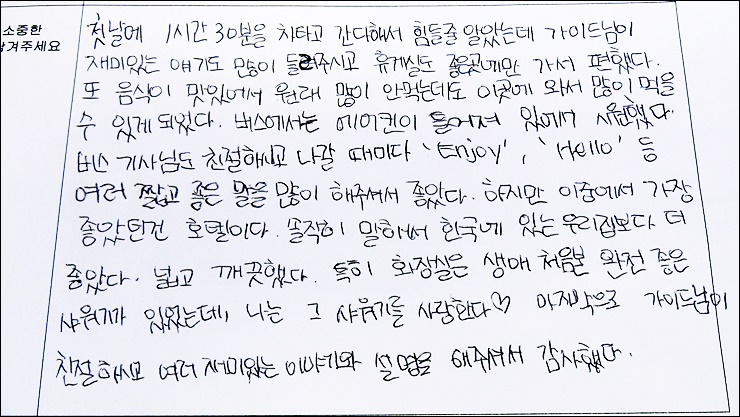 소중한
남겨주세요
첫날에 1시간 30분을 차타고 간다해서 힘들줄 알았는데 가이드님이
재미있는 얘기도 많이 들려주시고 휴게실도 좋은곳에만 가서 편했다.
또 음식이 맛있어서 원래 많이 안먹는데도 이곳에 와서 많이 먹을
수 있게 되었다. 버스에서는 에어컨이 틀어져 있어서 시원했다.
버스 기사님도 친절하시고 나갈 때마다 'Enjoy', 'Hello' 등
여러 짧고 좋은 말을 많이 해주셔서 좋았다. 하지만 이중에서 가장
좋았던건 호텔이다. 솔직히 말해서 한국에 있는 우리집보다 더
좋았다. 넓고 깨끗했다. 특히 화장실은 생애 처음본 완전 좋은
샤워기가 있었는데, 나는 그 샤워기를 사랑한다♡ 마지막으로 가이드님이
친절하시고 여러 재미있는 이야기와 설명을 해주셔서 감사했다.